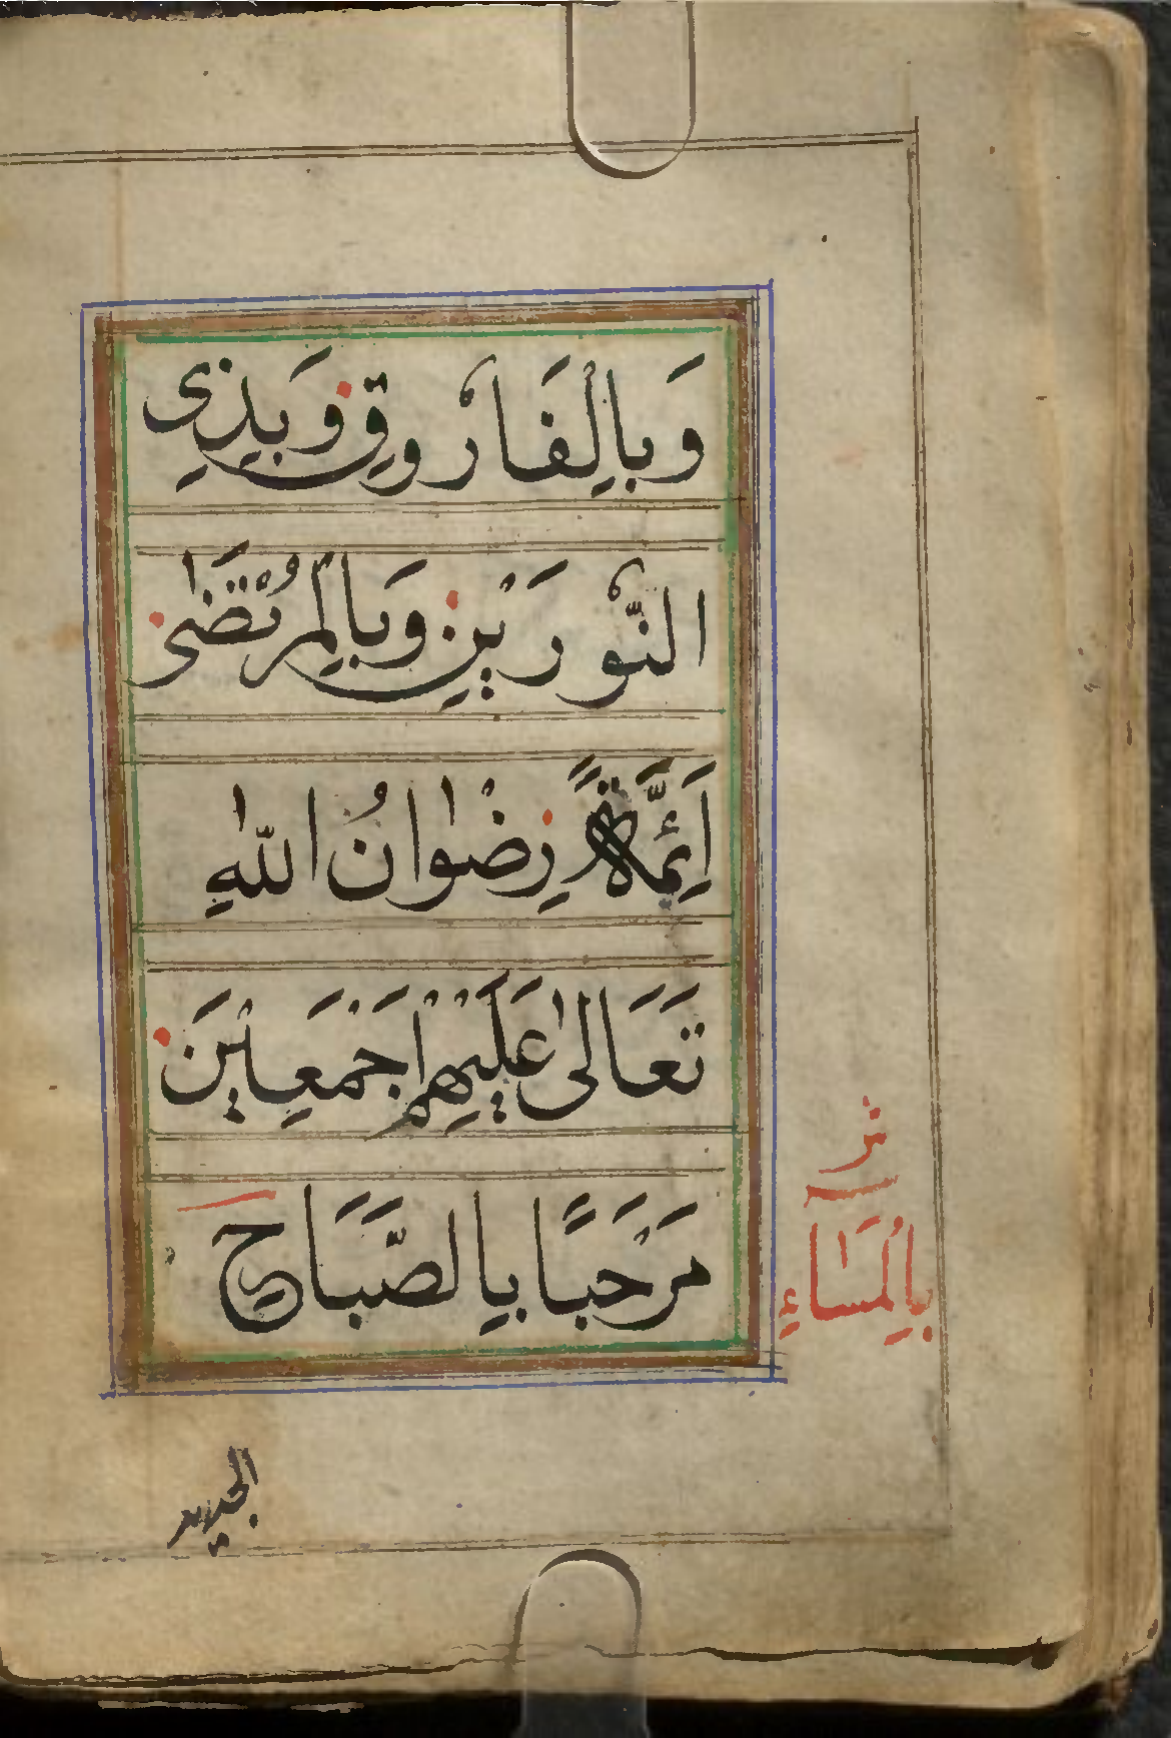 وَبِالْفَارُوقِ وَبِذِي
النُّورَيْنِ وَبِالْمُرْتَضٰى
اَئِمَّةً رِضْوَانُ اللهِ
تَعَالٰى عَلَيْهِمْ اَجْمَعِيْنَ
مَرْحَبًا بِالصَّبَاحِ
بِالْمَسَاءِ
الجديد